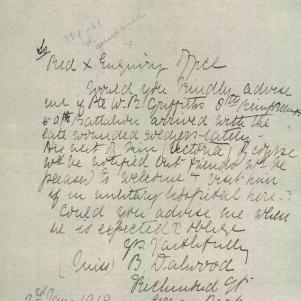 To
Red X Enquiry Office
Would you kindly advise
me if Pte W. B. Griffiths 8th Reinforcements
Battalion arrived with the
late wounded soldiers lately.
His next of kin (Victoria) of course
will be notified but friends will be
pleased to welcome & visit him
if in military hospital here.
Could you advise me when
he is expected & oblige
Yrs Faithfully
(Miss) B. Dalwood
Richmond